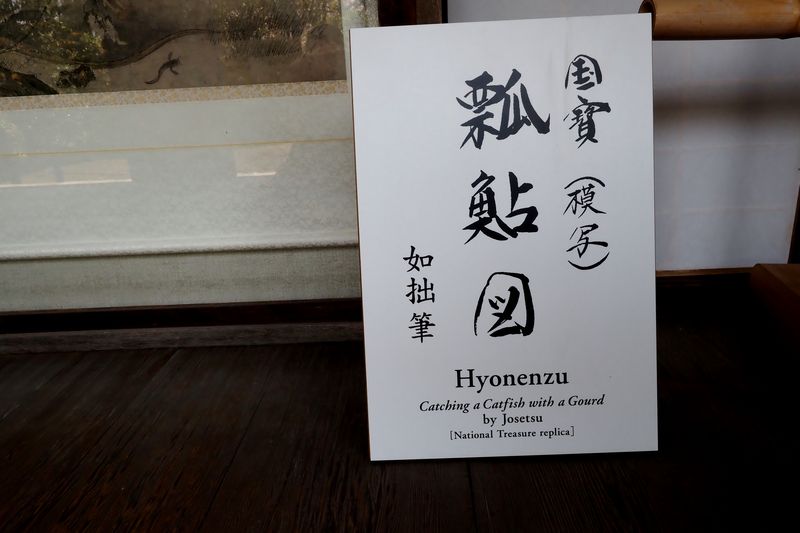 国寶（模写）
瓢鮎図
如拙筆
Hyonenzu
Catching a Catfish with a Gourd
by Josetsu
[National Treasure replica]